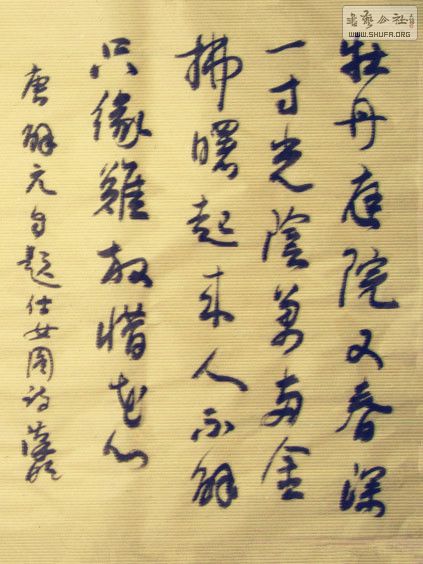 牡丹庭院又春深
一寸光陰萬兩金
拂曙起來人不解
只緣難放惜花心
唐解元自題仕女圖詩
書藝公社
WWW.SHUFA.ORG